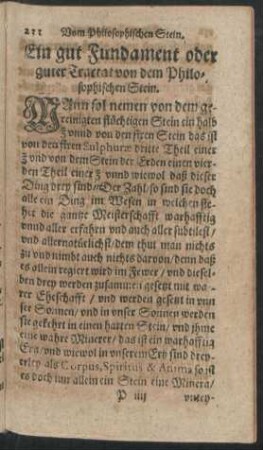 211 Vom Philosophischen Stein.
Ein gut Fundament oder
guter Tractat von dem Philo-
sophischen Stein.
MAnn sol nemen von dem ge-
reinigten flüchtigen Stein ein halb
ʒ vnnd von den fixen Stein das ist
von den fixen Sulphurn dritte Theil einer
ʒ vnd von dem Stein der Erden einen vier-
den Theil einer ʒ vnnd wiewol daß dieser
Ding drey sind/ Der Zahl/ so sind sie doch
alle ein Ding im Wesen in welchen ste-
het die gantze Meisterschafft warhafftig
vnnd aller erfahrn vnd auch aller subtilest/
vnd allernatürlichst/ dem thut man nichts
zu vnd nimbt auch nichts darvon/ denn daß
es allein regiert wird im Fewer/ vnd diesel-
ben drey werden zusammen gesetzt mit wa-
rer Eheschafft / vnd werden gesetzt in vnn
ser Sonnen/ vnd in vnser Sonnen werden
sie gekehrt in einen harten Stein/ vnd jhme
eine wahre Minerer/ das ist ein warhafftig
Ertz/ vnd wiewol in vnserem Ertz sind drey-
erley als Corpus, Spiritus & Anima so ist
es doch nur allein ein Stein eine Minera/
P iiij vntey-